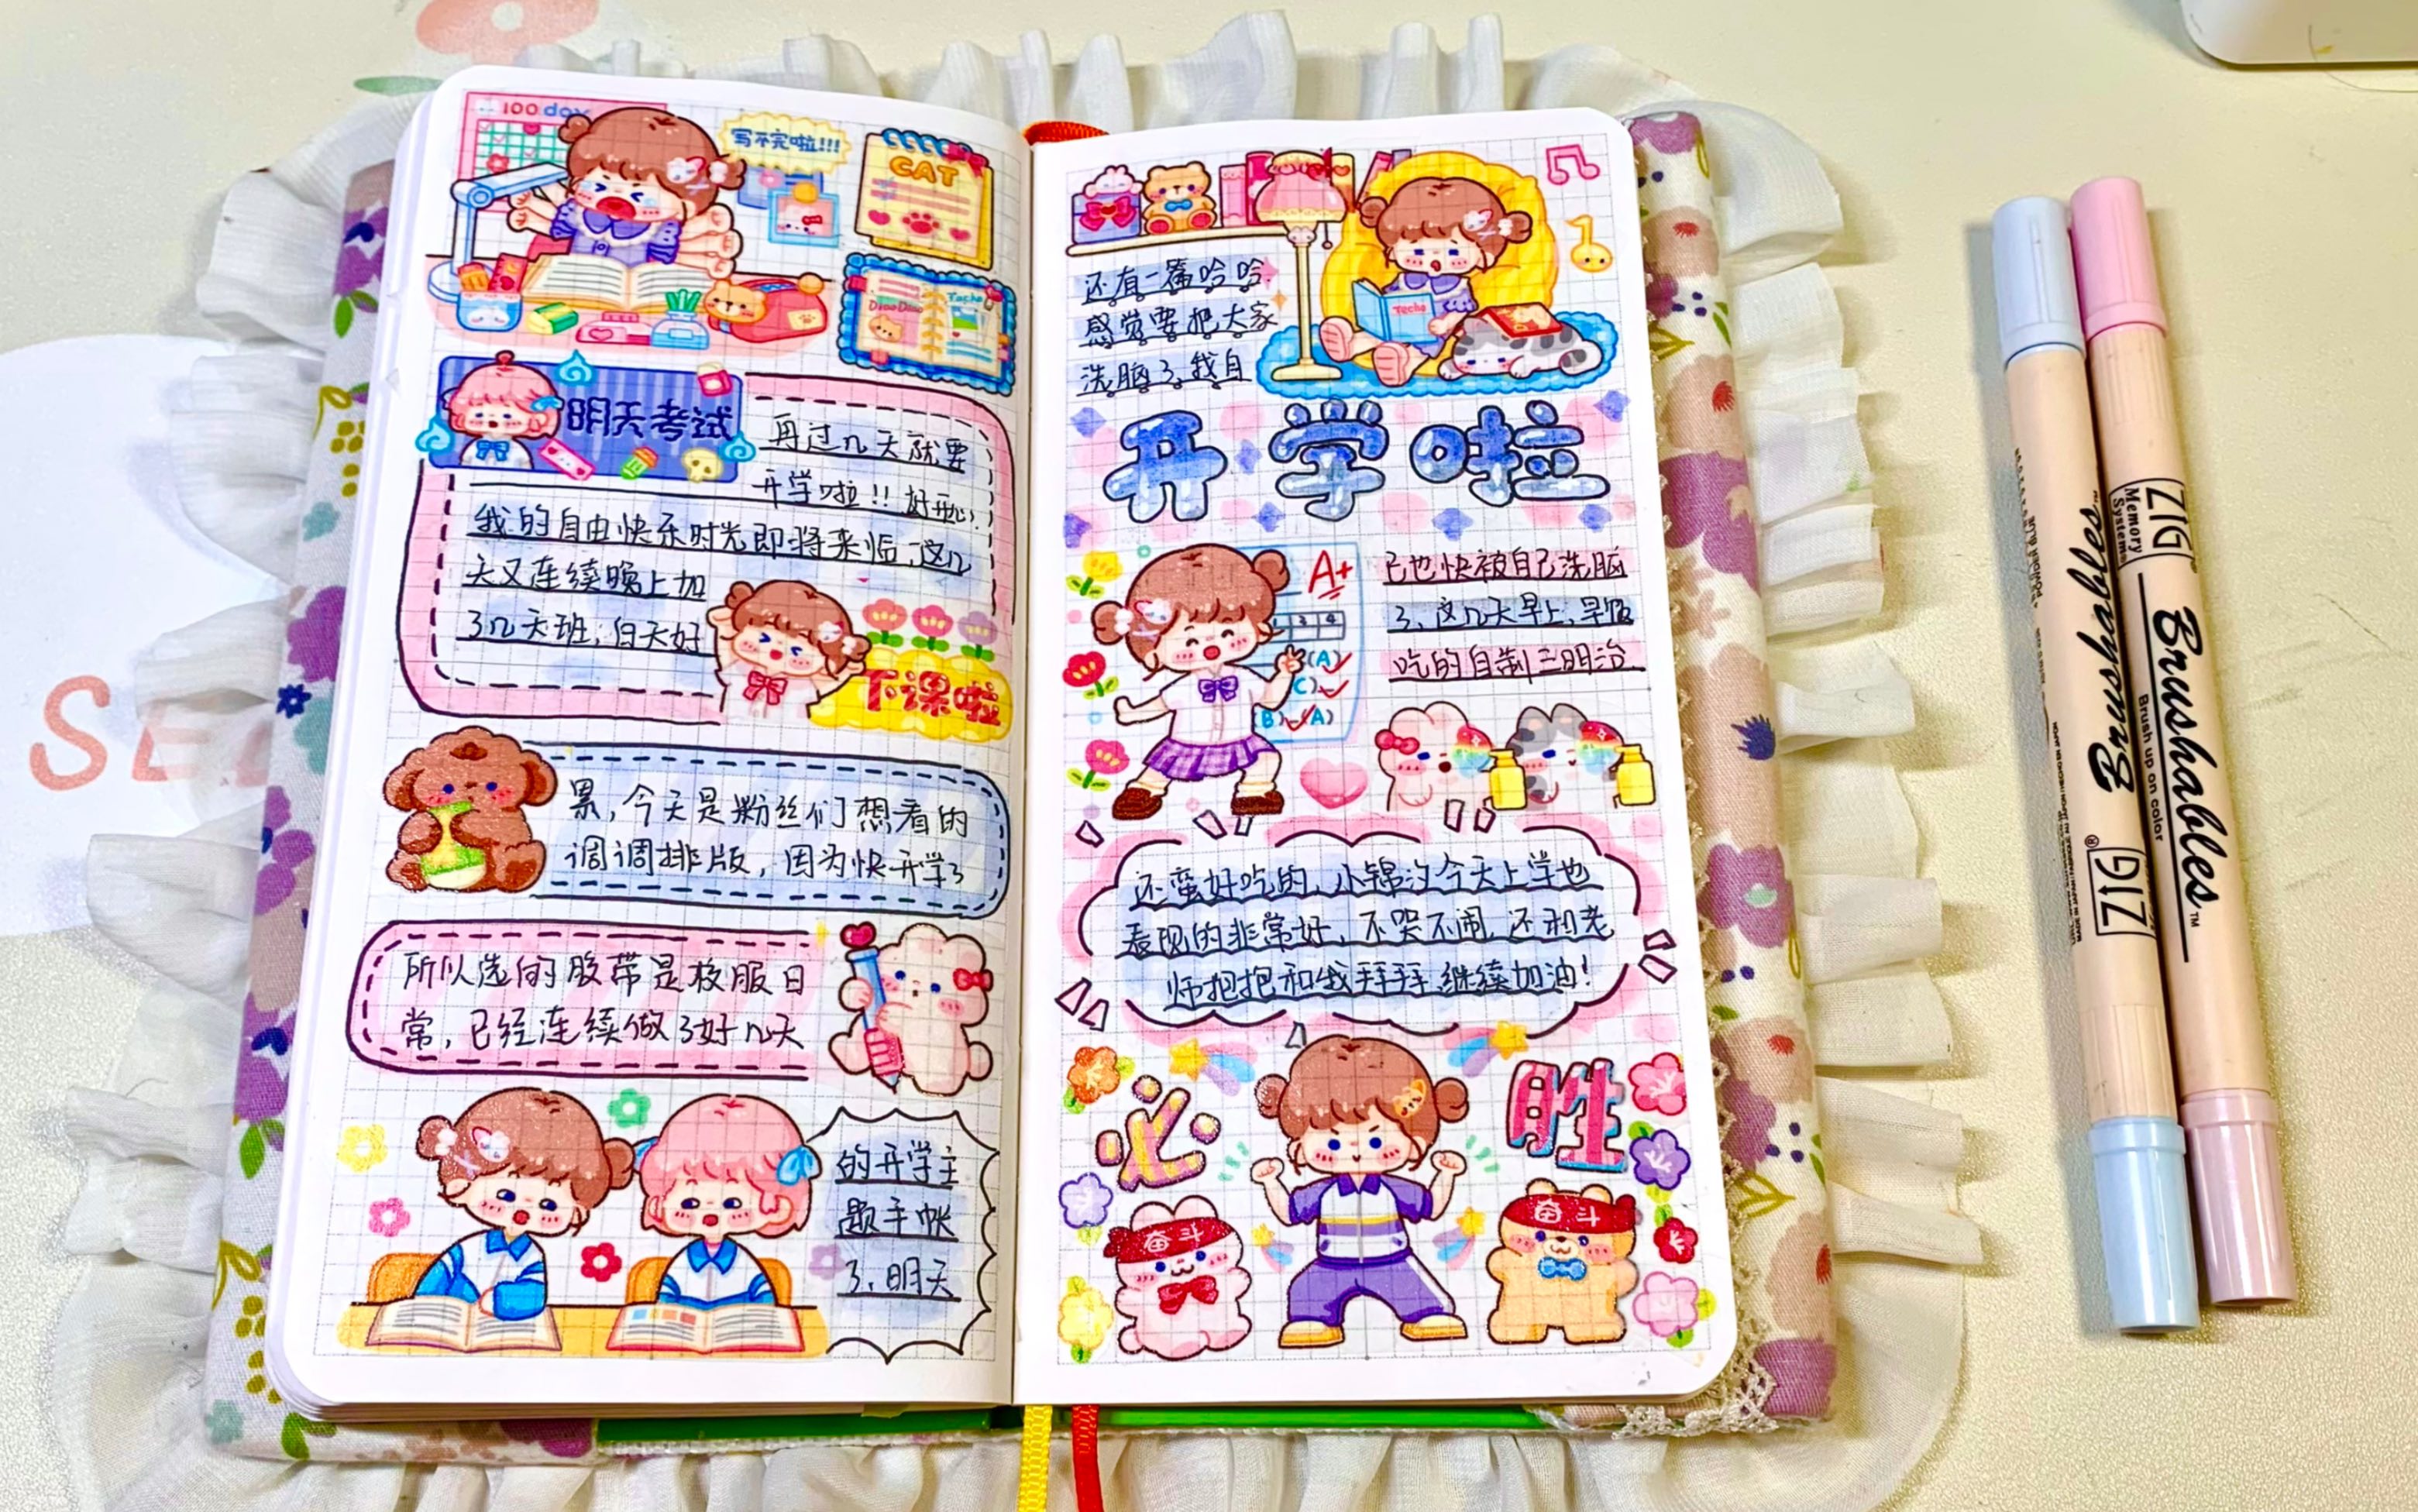 100 day
写不完啦!!!
CAT
DinoDino
Techo
明天考试
再过几天就要
开学啦!!好开心.
我的自由快乐时光即将来临,这几
天又连续晚上加
了几天班,白天好
下课啦
累,今天是粉丝们想看的
调调排版,因为快开学了
所以选的胶带是校服日
常,已经连续做了好几天
的开学主
题手帐
了,明天
还有一篇哈哈
感觉要把大家
洗脑了,我自
Techo
开学啦
A+
3 4
(A)
C)
B) (A)
己也快被自己洗脑
了,这几天早上,早饭
吃的自制三明治
还蛮好吃的,小锦汐今天上学也
表现的非常好,不哭不闹,还和老
师抱抱和我拜拜,继续加油!
必胜
奋斗
奋斗
SE
ZIG
Memory System
Brushables™
ZIG®
ZIG®
Memory Systems
Brushables™
Brush up on color